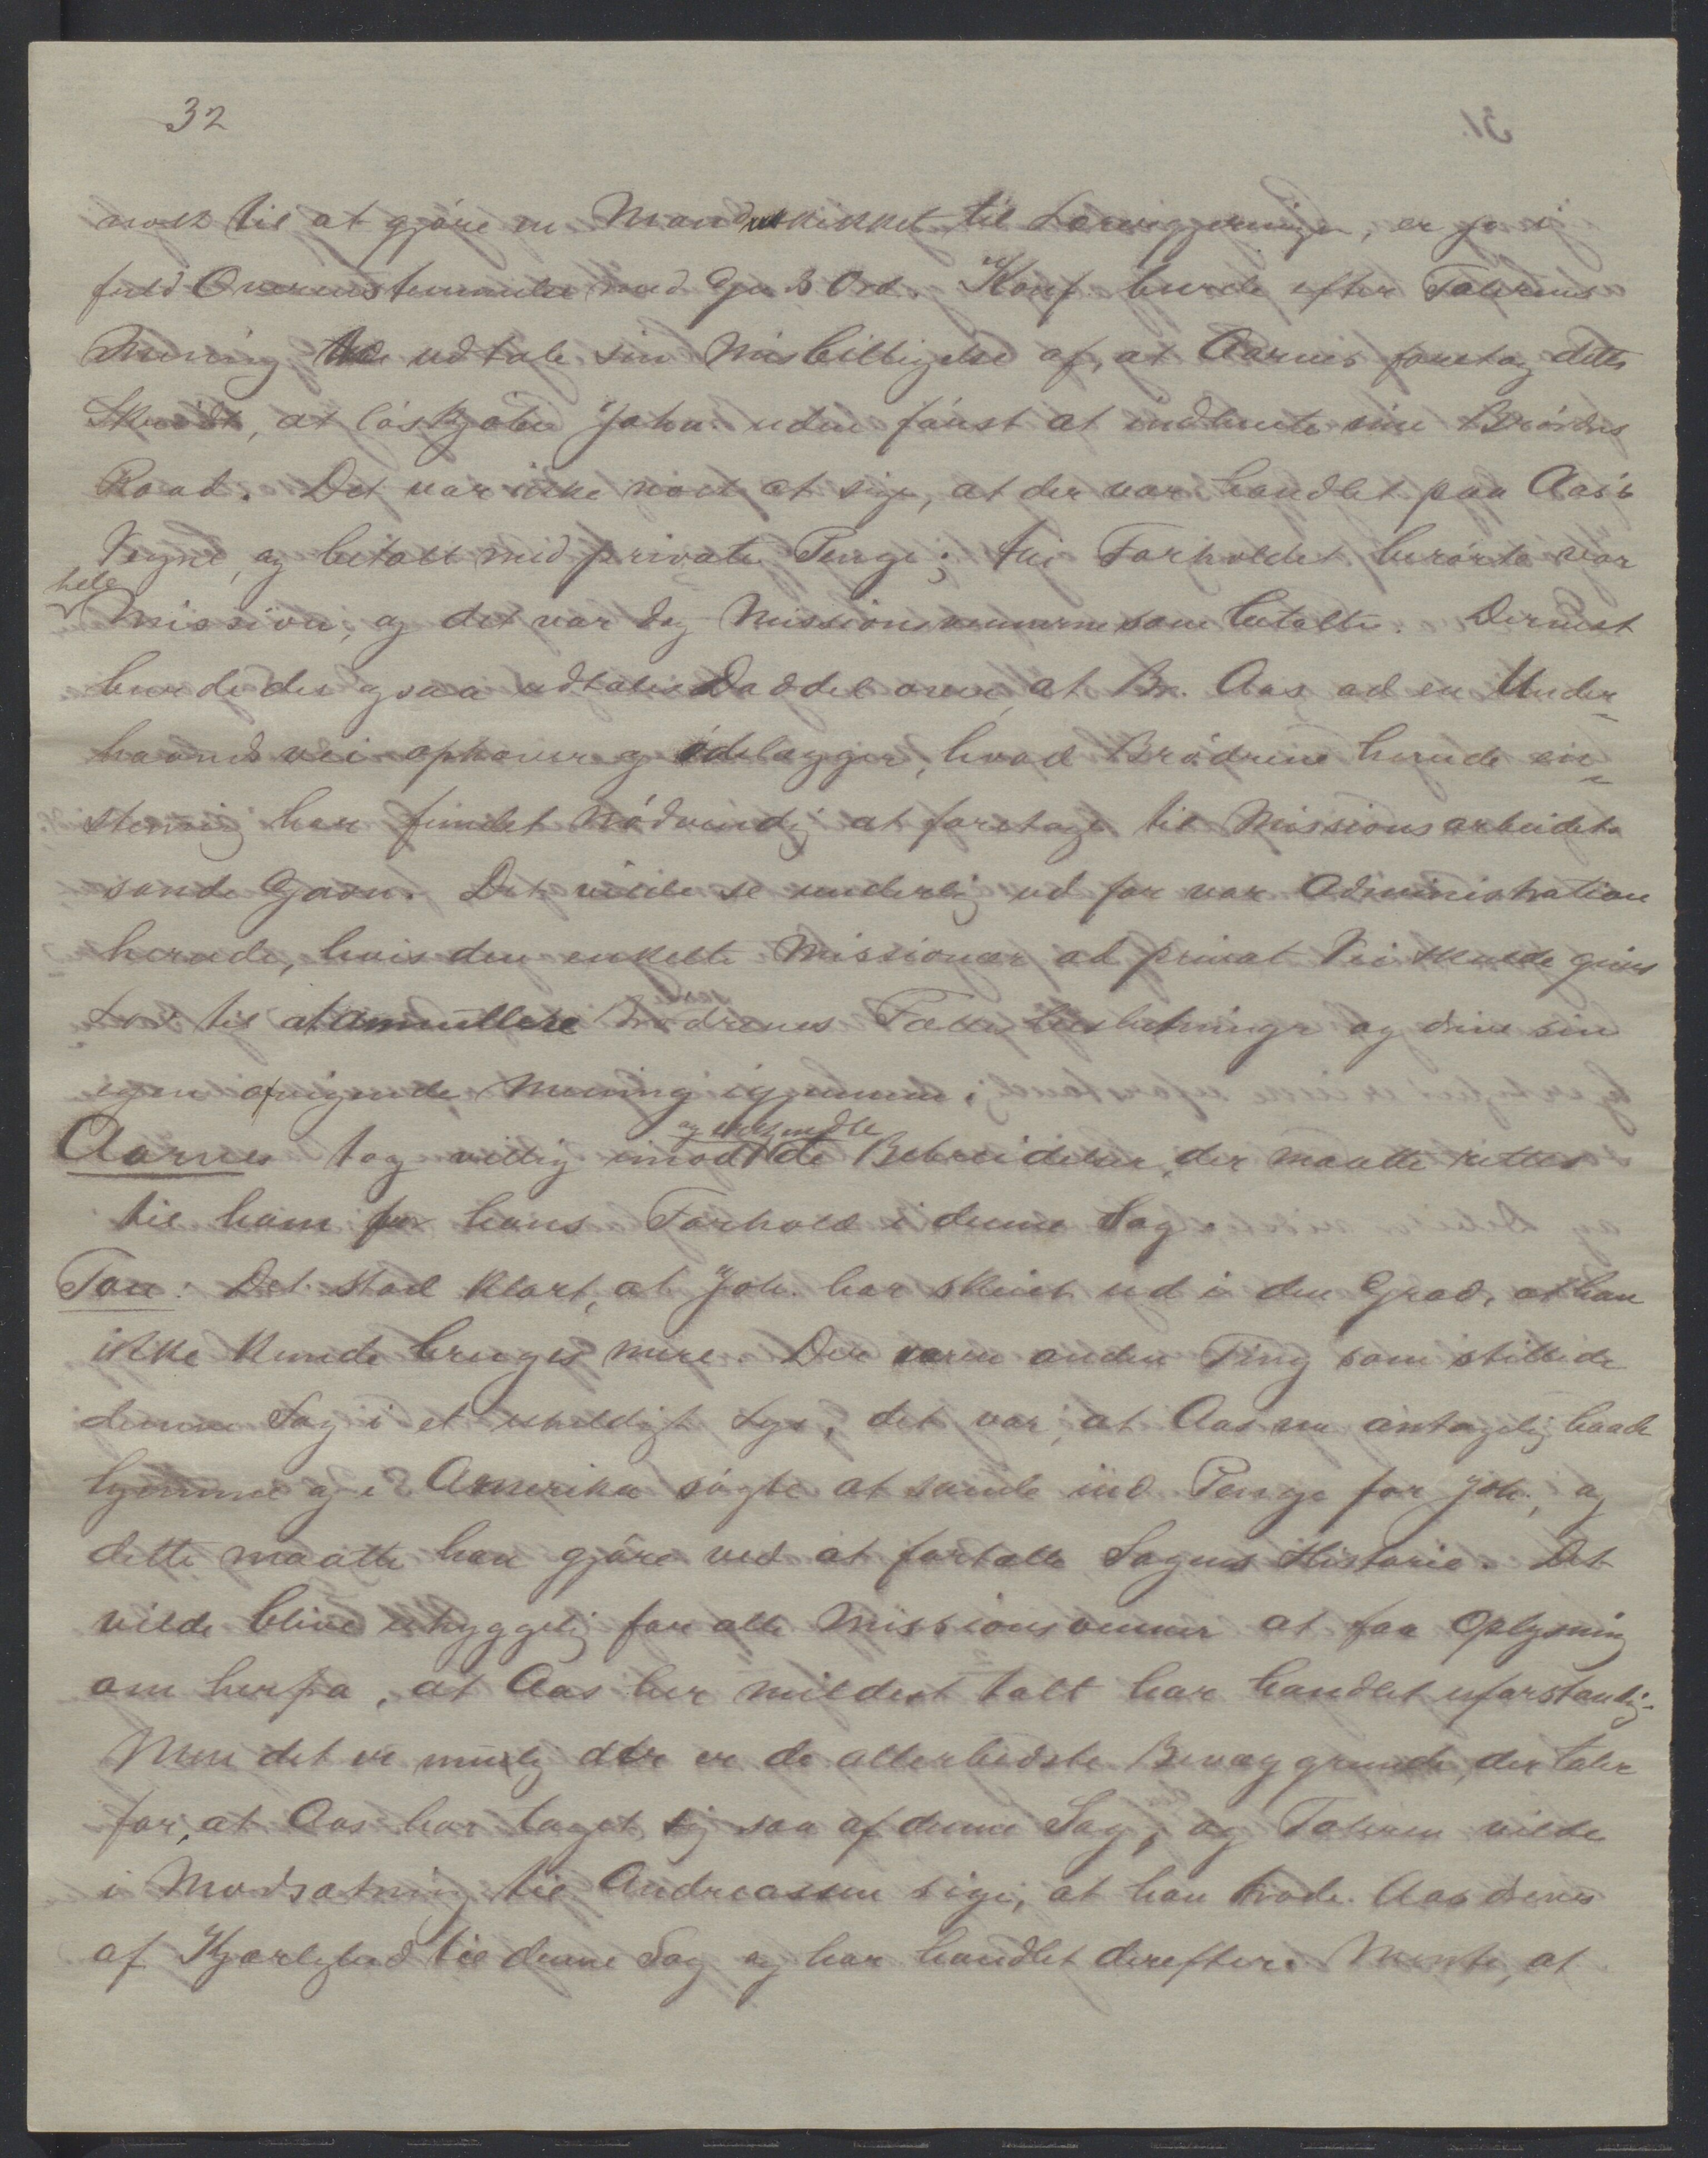 32
nok til at gjöre en Mand uskikket til Lærergjerningen, er jo i
fuld Overensstemmelse med Guds Ord. Konf. burde efter Talerens
Mening udtale sin Misbilligelse af, at Aarnes foretog dette
Skridt, at löskjöbe Joh. uden först at indhente sine Brödres
Raad. Det var ikke nok at sige, at der var handlet paa Aas's
Vegne, og betalt med private Penge; thi Forholdet berörte vor
hele
Mission, og det var dog Missionsvennerne som betalte. Dernæst
burde der ogsaa udtales Daddel over, at Br. Aas ad en Under-
haands vei ophæver og ödelægger, hvad Brödrene herude en-
stemmig har fundet Nödvendig at foretage til Missionsarbeidets
sande Gavn. Det vilde se underlig ud for vor Administration
herude, hvis den enkelte Missionær ad privat Vei skulde gives
Lov til at annullere Brödrenes Fælles beslutninger og drive sin
egen afvigende Mening igjennem.
og
Aarnes tog villig imod de Bebreidelser, der maatte rettes
til ham for hans Forhold i denne Sag.
Tou: Det stod klart, at Joh. har skeiet ud i den Grad, at han
ikke kunde bruges mere. Der var en anden Ting som stillede
denne Sag i et uheldigt Lys, det var, at Aas nu antagelig baade
hjemme og i Amerika sögte at samle ind Penge for Joh., og
dette maatte han gjöre ved at fortælle Sagens Historie. Det
vilde blive uhyggelig for alle Missionsvenner at faa Oplysning
om herfra, at Aas her mildest talt har handlet uforstandig.
Men det er mulig der er de allerbedste Bevæggrunde, der taler
for, at Aas har taget sig saa af denne Sag, og Taleren vilde
i Modsætning til Andreassen sige, at han troede Aas dreves
af Kjærlighed til denne Sag og har handlet derefter. Mente, at